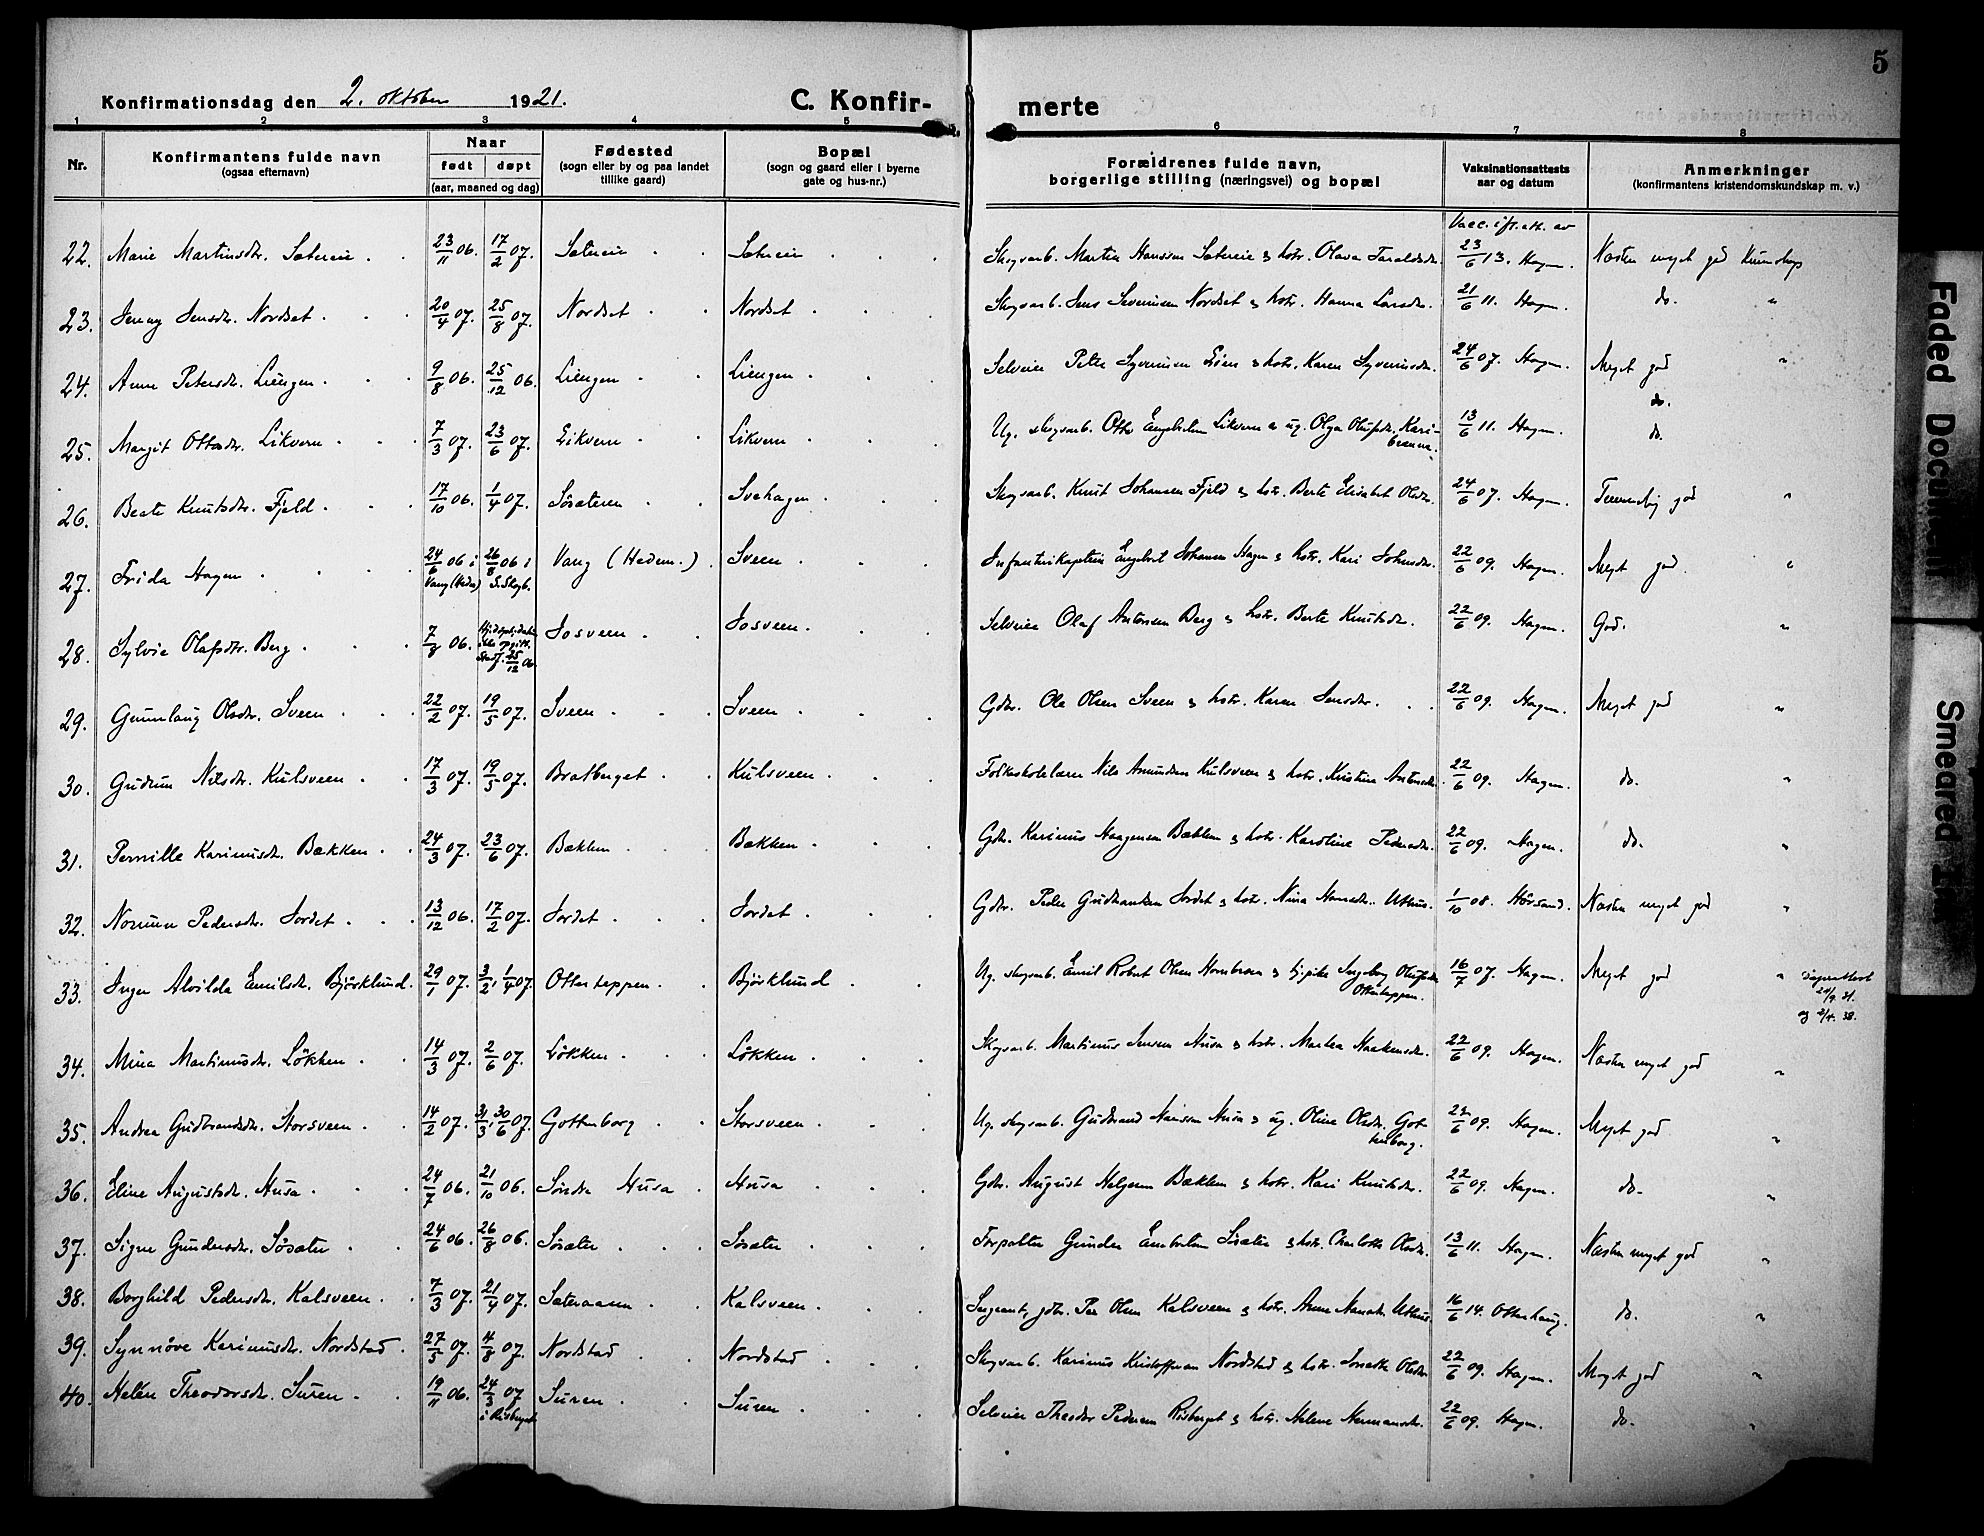 5
Konfirmationsdag den 2. oktober 1921.
C. Konfir- merte
1 2 3 4 5 6 7 8
Nr.
Konfirmantens fulde navn
(ogsaa efternavn)
Naar
født døpt
(aar, maaned og dag)
Fødested
(sogn eller by og paa landet
tillike gaard)
Bopæl
(sogn og gaard eller i byerne
gate og hus-nr.)
Forældrenes fulde navn,
borgerlige stilling (næringsvei) og bopæl
Vaksinationsattests
aar og datum
Anmerkninger
(konfirmantens kristendomskundskap m. v.)
Vacc. ifl. att. av
22. Marie Martinsdtr. Sætereie 23/11 06. 17/2 07. Sætereie Sætereie Skogsarb. Martin Hanssen Sætereie & hstr. Olava Taraldsdtr. 23/6 13. Hagen. Næsten meget god kundskap
23. Jenny Jensdtr. Nordset 20/4 07. 25/8 07. Nordset Nordset Skogsarb. Jens Severinsen Nordset & hstr. Hanna Larsdtr. 21/6 11. Hagen. do. "
24. Anne Petersdtr. Liengen 9/8 06. 25/12 06. Liengen Liengen Selveier Peter Syversen Lien & hstr. Karen Syverinsdtr. 24/6 07. Hagen. Meget god "
do.
25. Margit Ottosdtr. Likvern 7/3 07. 23/6 07. Likvern Likvern Ug. skogsarb. Otto Engebretsen Likvern & ug. Olga Olufsdtr. Kari-
branna. 13/6 11. Hagen. do.
26. Beate Knutsdtr. Fjeld 17/10 06. 1/4 07. Søsæteren Svehagen Skogsarb. Knut Johansen Fjeld & hstr. Berte Elisabet Olsdtr. 24/6 07. Hagen. Temmelig god "
27. Frida Hagen 24/6 06 i
Vang (Hedm) 26/8 06 i
S. Skogb. Vang (Hedm.) Sveen Infanterikaptein Engebret Johansen Hagen & hstr. Kari Johnsdtr. 22/6 09. Hagen. Meget god "
28. Sylvia Olafsdtr. Berg 7/7 06. Hjdøpt, dato
ikke opgitt.
Stadf. 25/12 06 Josveen Josveen Selveier Olaf Antonsen Berg & hstr. Berte Knutsdtr. 22/6 09. Hagen. God. "
29. Gunnlaug Olsdtr. Sveen 22/2 07. 19/5 07. Sveen Sveen Gdbr. Ole Olsen Sveen & hstr. Karen Jensdtr. 22/6 09. Hagen. Meget god "
30. Gudrun Nilsdtr. Kulsveen 17/3 07. 19/5 07. Bratberget Kulsveen Folkeskolelærer Nils Amundsen Kulsveen & hstr. Kristine Antonsdtr. 22/6 09. Hagen. do. "
31. Pernille Karinusdtr. Bækken 24/3 07. 23/6 07. Bækken Bækken Gdbr. Karinus Haagensen Bækken & hstr. Karoline Pedersdtr. 22/6 09. Hagen. do. "
32. Norunn Pedersdtr. Jordet 13/12 06. 17/2 07. Jordet Jordet Gdbr. Peder Gudbrandsen Jordet & hstr. Nina Hansdtr. Uthus. 1/10 08. Hørsand. Næsten meget god "
33. Inger Alvilda Emilsdtr. Bjørklund 29/1 07. 3/2, 1/4 07. Ottertappen Bjørklund Ug. skogsarb. Emil Robert Olsen Nordveen & ug. pike Ingeborg Olufsdtr.
Ottertappen. 16/7 07. Hagen. Meget god "
Daapsattest
24/9. 31.
og 2/4. 38.
34. Mina Martinusdtr. Løkken 14/3 07. 2/6 07. Løkken Løkken Skogsarb. Martinus Jensen Husa & hstr. Martea Haakensdtr. 22/6 09. Hagen. Næsten meget god "
35. Andrea Gudbrandsdtr. Storsveen 14/2 07. 31/3, 30/6 07. Gottenborg Storsveen Ug. skogsarb. Gudbrand Hansen Husa & ug. Oline Olsdtr. Got-
tenborg. 22/6 09. Hagen. Meget god "
36. Eline Augustsdtr. Husa 24/7 06. 21/10 06. Søndre Husa Husa Gdbr. August Helgesen Bækken & hstr. Kari Knutsdtr. 22/6 09. Hagen. do. "
37. Signe Gundersdtr. Søsæter 24/6 06. 26/8 06. Søsæter Søsæter Forpakter Gunder Embretsen Søsæter & hstr. Charlotte Olsdtr. 13/6 11. Hagen. Næsten meget god "
38. Borghild Pedersdtr. Kalsveen 7/3 07. 21/4 07. Sæteraaen Kalsveen Sergeant, gdbr. Per Olsen Kalsveen & hstr. Anne Hansdtr. Uthus 16/6 14. Otterhaug. do. "
39. Synnøve Karinusdtr. Nordstad 27/5 07. 4/8 07. Nordstad Nordstad Skogsarb. Karinus Kristoffersen Nordstad & hstr. Josefa Olsdtr. 22/6 09. Hagen. Meget god "
40. Helen Theodorsdtr. Suren 19/11 06. 24/3 07
i Risberget Suren Suren Selveier Theodor Pedersen Risberget & hstr. Helene Hermansdtr. 22/6 09. Hagen. do. "
Faded Document
Smeared Ink